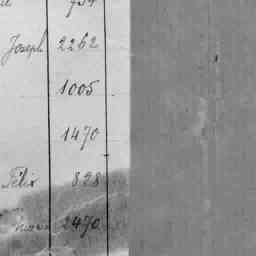 Joseph 2262
1005
1470
Félix 828
2470